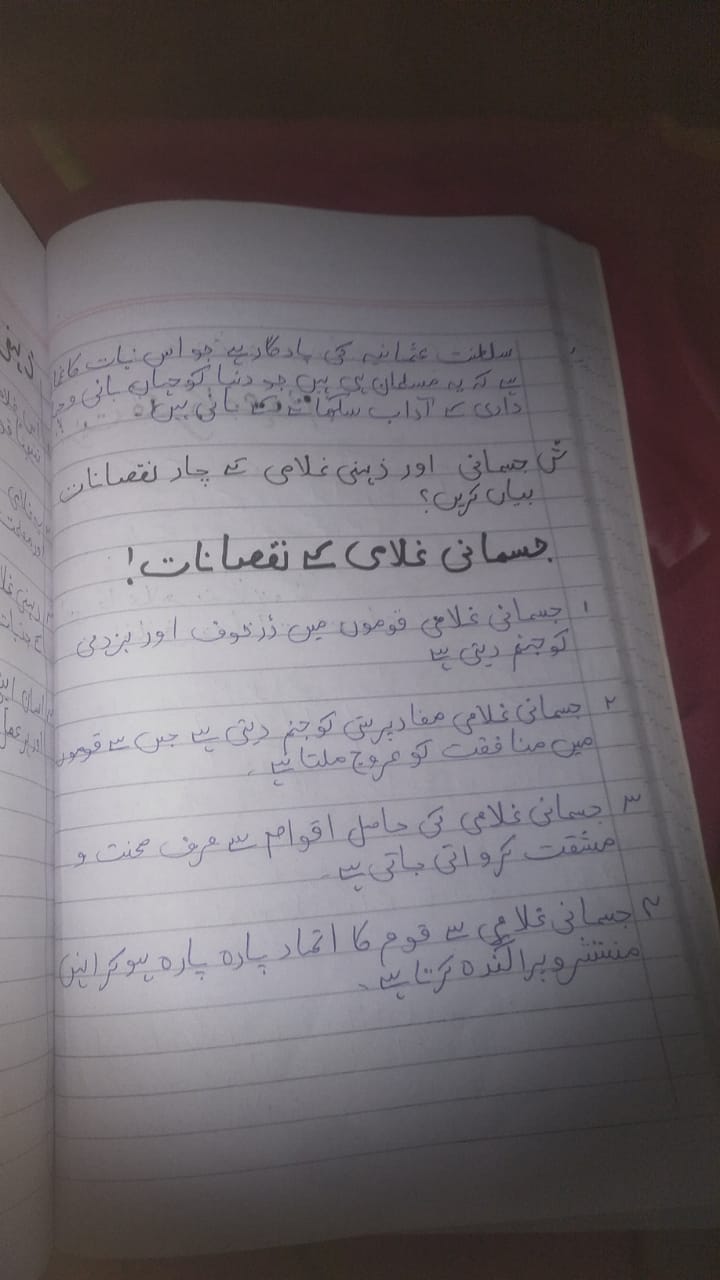 سلطنت عثمانیہ کی یادگار ہے جو اس بات کا
ہے کہ یہ مسلمان ہی ہیں جو دنیا کو جہاں بانی و
داری کے آداب سکھانے کے بانی ہیں۔
س جسمانی اور ذہنی غلامی کے چار نقصانات
بیان کریں؟
جسمانی غلامی کے نقصانات!
۱ جسمانی غلامی قوموں میں ڈر خوف اور بزدلی
کو جنم دیتی ہے
۲ جسمانی غلامی مفاد پرستی کو جنم دیتی ہے جس سے قوموں
میں منافقت کو عروج ملتا ہے۔
۳ جسمانی غلامی کی حامل اقوام سے صرف محنت و
مشقت کروائی جاتی ہے۔
۴ جسمانی غلامی سے قوم کا اتحاد پارہ پارہ ہو کر انہیں
منتشر و پراگندہ کرتا ہے۔